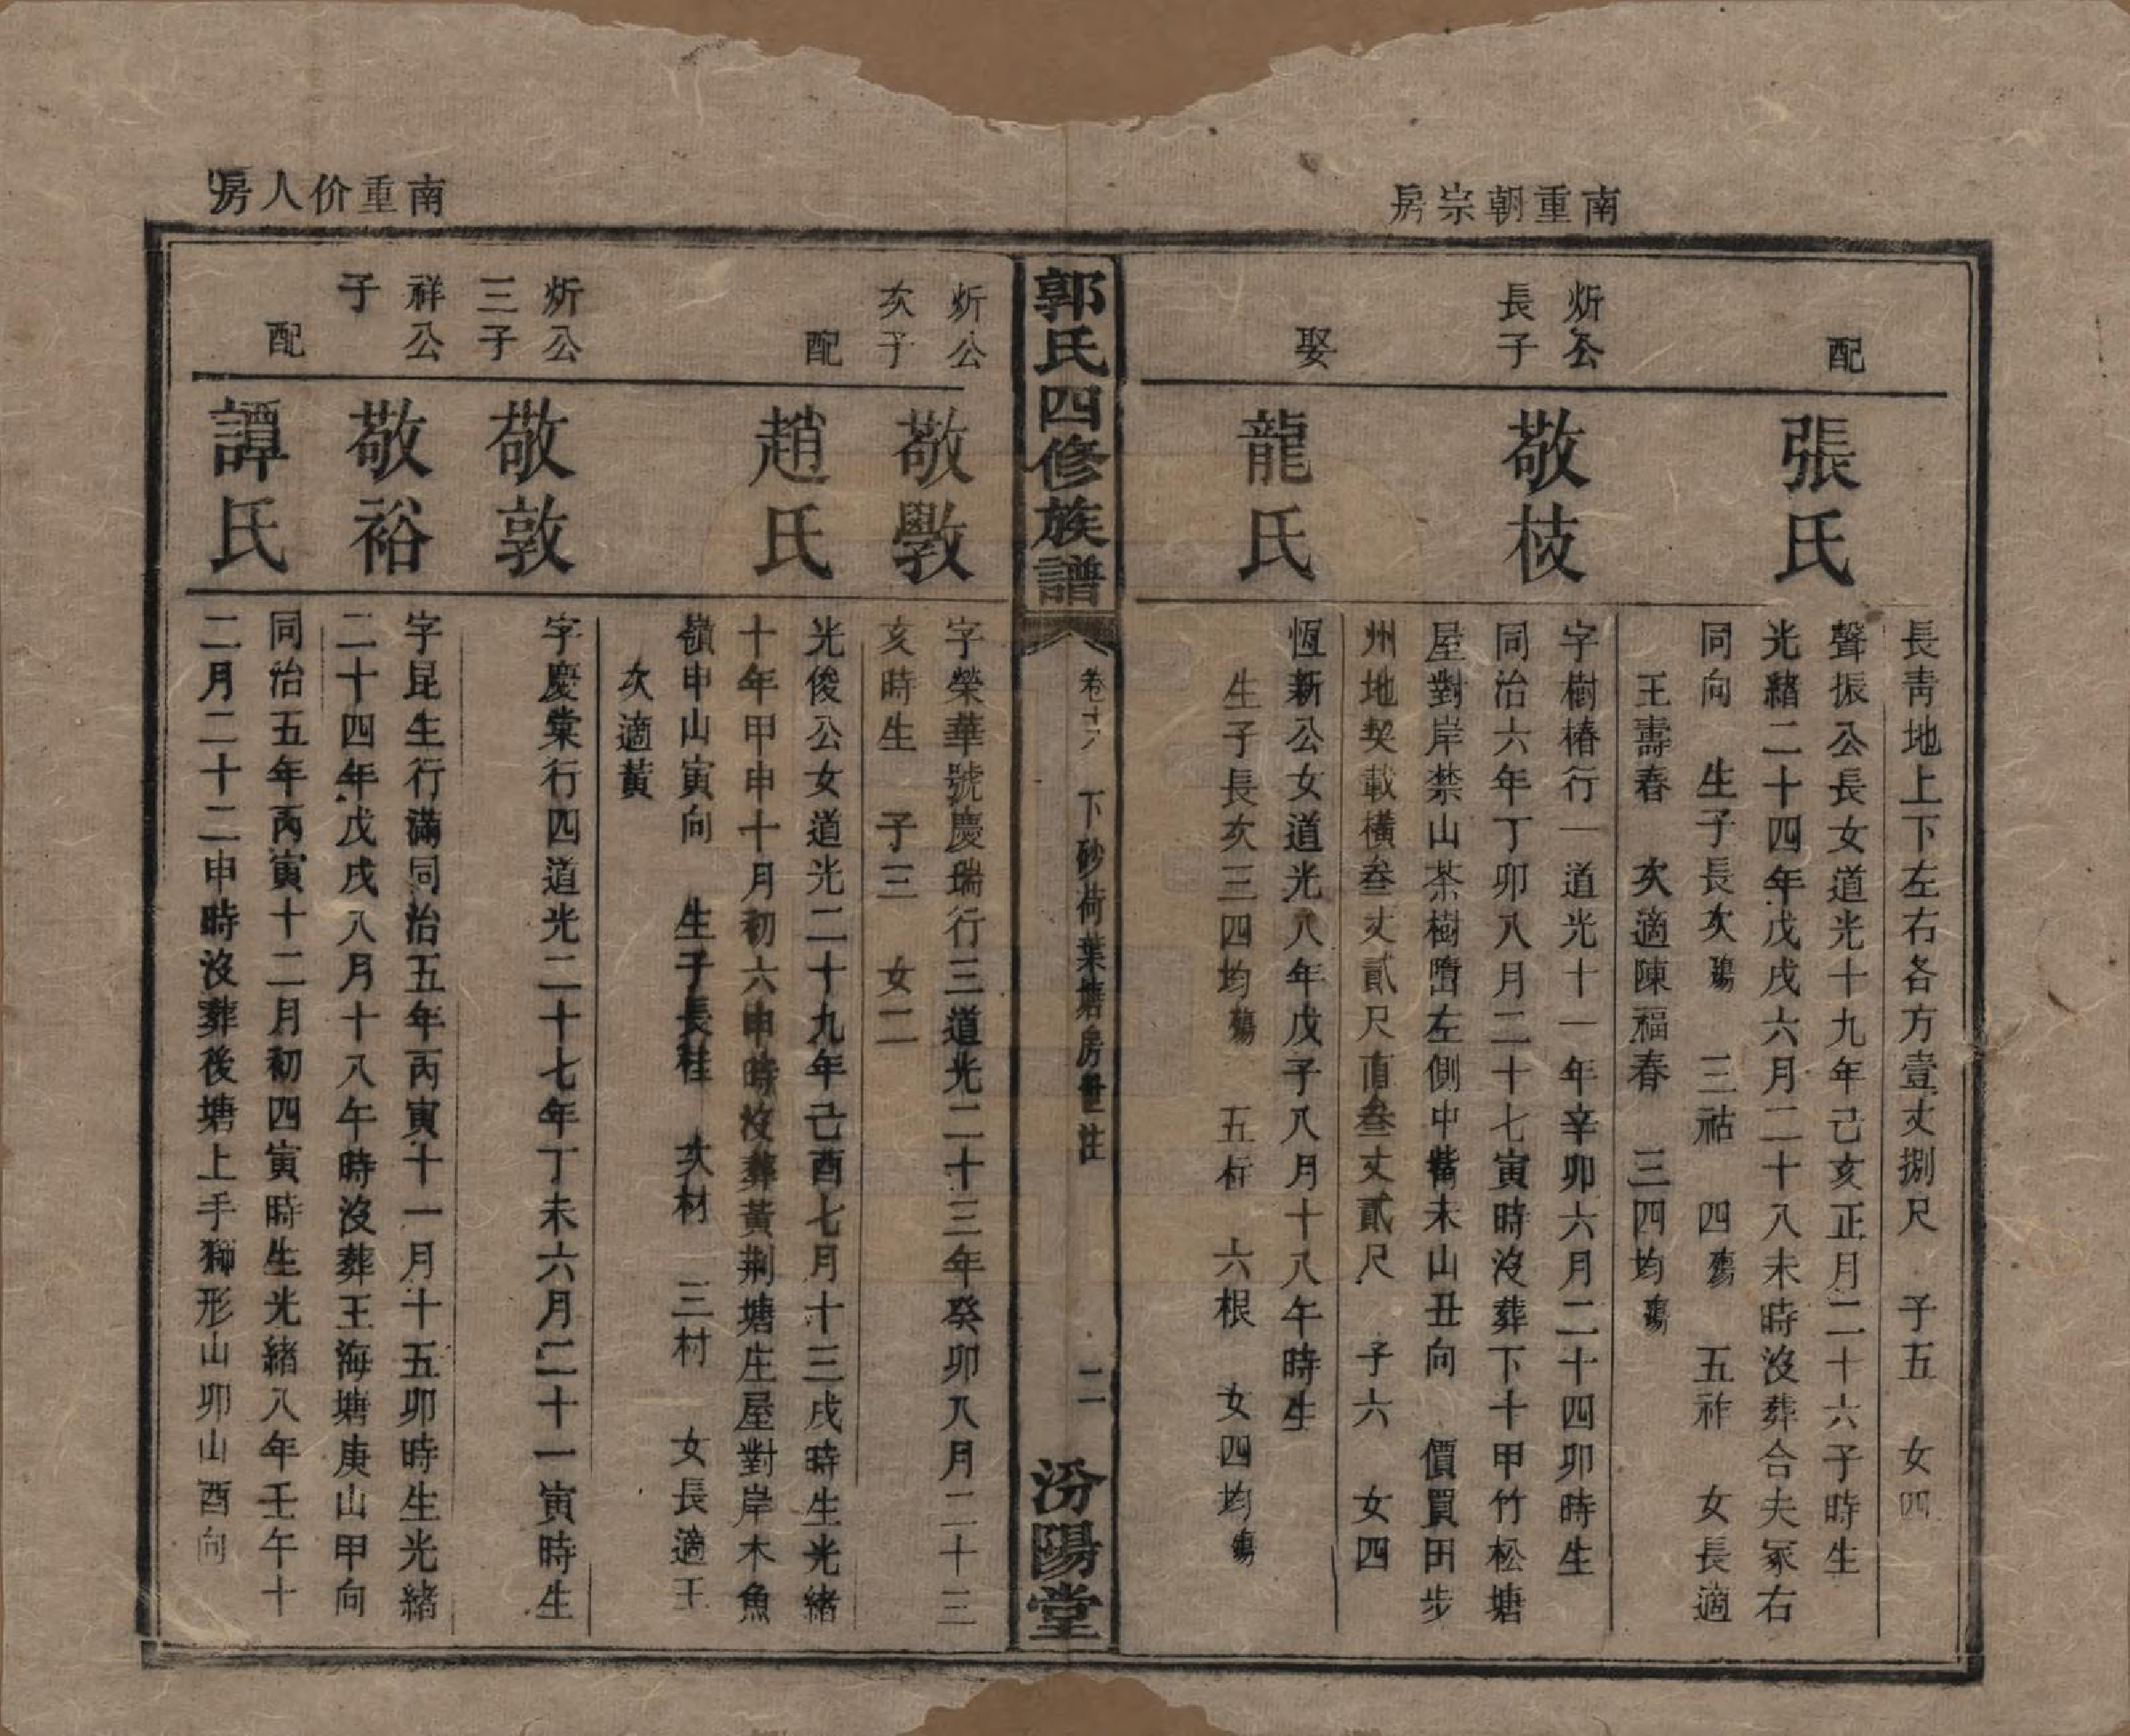 南重朝宗房
長靑地上下左右各方壹丈捌尺 子五 女四
配
張氏
聲振公長女道光十九年己亥正月二十六子時生
光緒二十四年戊戌六月二十八未時沒葬合夫冢右
同向 生子長次殤 三祜 四殤 五祚 女長適
王壽春 次適陳福春 三四均殤
炘公
長子
敬枝
字樹椿行一道光十一年辛卯六月二十四卯時生
同治六年丁卯八月二十七寅時沒葬下十甲竹松塘
屋對岸禁山茶樹窩左側中嘴未山丑向 價買田步
州地契載橫叁丈貳尺直叁丈貳尺 子六 女四
娶
龍氏
恆新公女道光八年戊子八月十八午時生
生子長次三四均殤 五析 六根 女四均殤
郭氏四修族譜
卷十八 下砂荷葉塘房世註
二
汾陽堂
南重价人房
炘公
次子
敬斆
字榮華號慶瑞行三道光二十三年癸卯八月二十三
亥時生 子三 女二
配
趙氏
光俊公女道光二十九年己酉七月十三戌時生光緒
十年甲申十月初六申時沒葬黃荆塘庄屋對岸木魚
嶺申山寅向 生子長桂 次材 三村 女長適王
次適黃
炘公
三子
敬敦
字慶棠行四道光二十七年丁未六月二十一寅時生
祥公
子
敬裕
字昆生行滿同治五年丙寅十一月十五卯時生光緒
二十四年戊戌八月十八午時沒葬王海塘庚山甲向
配
譚氏
同治五年丙寅十二月初四寅時生光緒八年壬午十
二月二十二申時沒葬後塘上手獅形山卯山酉向